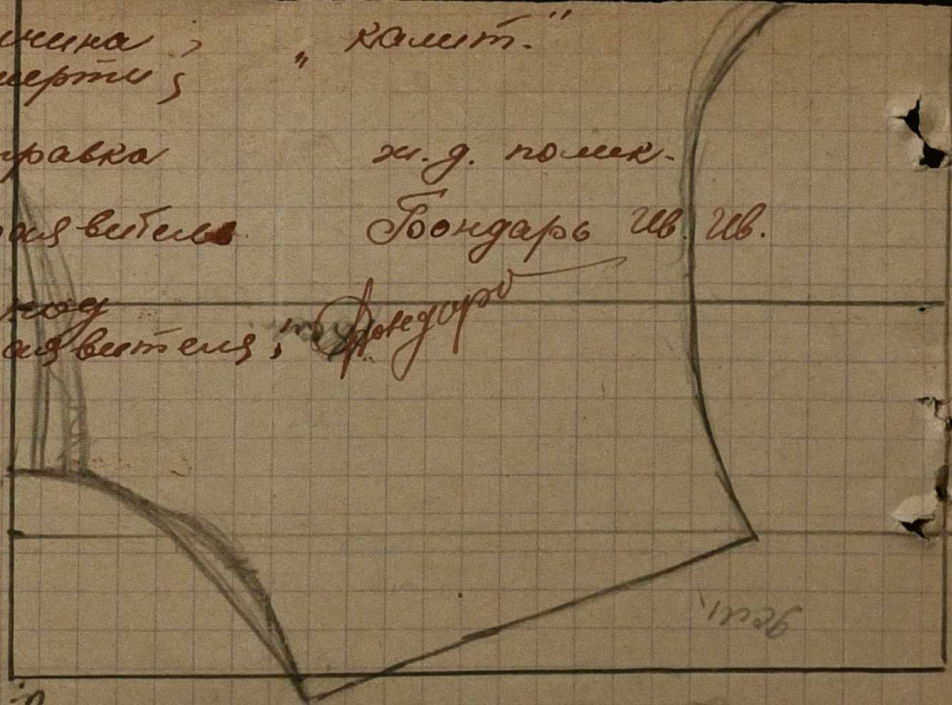 ичина ; „ калит.“
мерти ;
правка ж.д. полик.
аявитель Бондарь Ив. Ив.
под
аявителя ; Бондарь